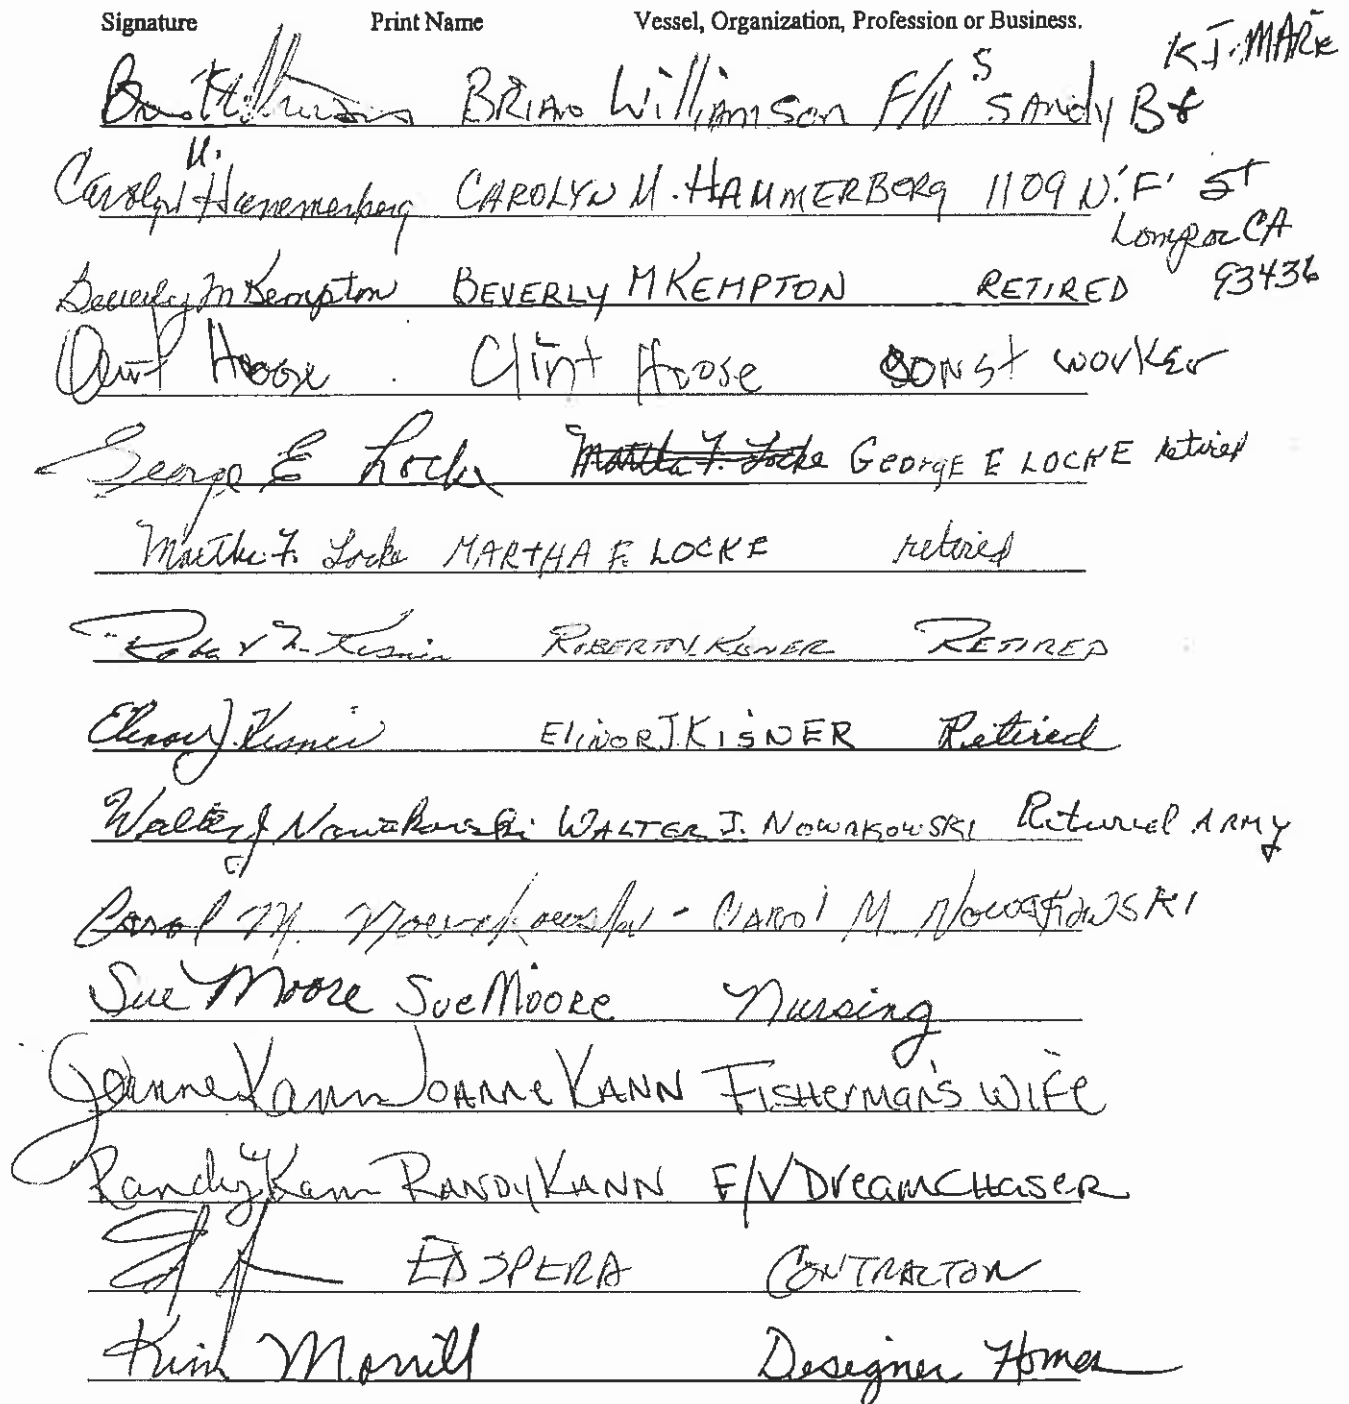 Signature Print Name Vessel, Organization, Profession or Business.
Brian Williamson F/V's Sandy B & KJ. MARK
Carolyn U. Hammerberg CAROLYN U. HAMMERBERG 1109 N. 'F' ST
Lompoc CA
93436
Beverly M Kempton BEVERLY M KEMPTON RETIRED
Clint Hoose Clint Hoose Const worker
George E Locke Martha F. Locke GEORGE E LOCKE retired
Martha F. Locke MARTHA F. LOCKE retired
Robert N. Kisner ROBERT N. KISNER RETIRED
Elinor J. Kisner ELINOR J. KISNER Retired
Walter J Nowakowski WALTER J. NOWAKOWSKI Retired ARMY
Carol M. Nowakowski - CAROL M. NOWAKOWSKI
Sue Moore Sue Moore Nursing
Joanne Kann JOANNE KANN Fisherman's WIFE
Randy Kann RANDY KANN F/V Dream CHASER
ED SPERA CONTRACTOR
Kim Morrill Designer Homes